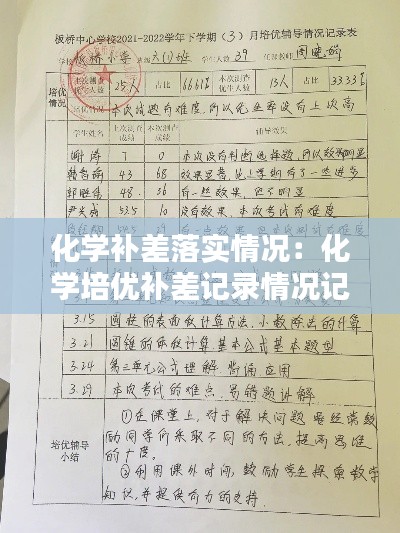 板桥中心学校2021-2022学年下学期（3）月培优辅导情况记录表
学校 板桥小学 班级 六(1)班 学生人数 39 任课教师
培优情况 本次测查优生人数 25人 占比 66.61% 本次测查 13人 占比 33.33%
本次试题有难度，所以优生率没有上次高
学生姓名 上次测查成绩 本次测查成绩 辅导效果
谢涛 7 0 本次没有判断选择题，所以效果明显
韩智楠 43 68
48 36 有一些效果，但不明显
53.5 10 没有效果，本次考试有难度
化学补差落实情况：化
学培优补差记录情况记
3.15 圆柱的表面积计算方法，小数除法的计算
3.21 圆锥的体积计算，基本公式基本题型
3.24 第三单元公式理解，背诵，应用
3.29 本次考试的难点、易错题讲解
培优辅导小结
①在课堂上，对于解决问题 是经常鼓
励同学们采取不同的方法，提高思维
的广度。
②利用课外时间，鼓励学生探索数学
知识，并提供有力的支持。